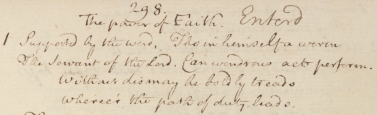 298.
The power of Faith. Enterd
1 Supported by the word, Tho in himself a worm
The Servant of the Lord. Can wondrous acts perform.
Without dismay he boldly treads
Where'er the path of duty leads.